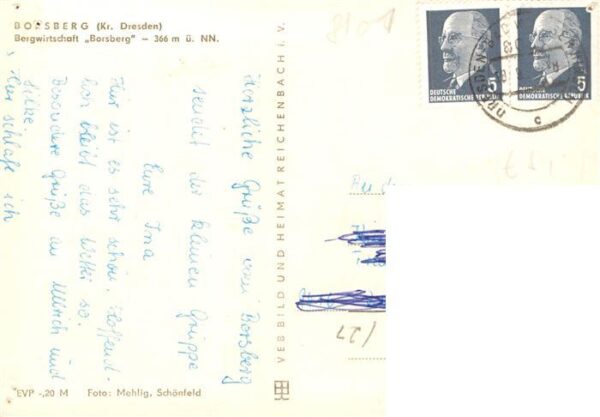 BORSBERG (Kr. Dresden)
Bergwirtschaft „Borsberg" – 366 m ü. NN.
Herzliche Grüße vom Borsberg
sendet der kleinen Gruppe
Eure Ina
Hier ist es sehr schön. Hoffent-
lich bleibt das Wetter so.
Besondere Grüße an und
Hier schlafe ich
EVP -,20 M Foto: Mehlig, Schönfeld
VEB BILD UND HEIMAT REICHENBACH i. V.
8101
DEUTSCHE
DEMOKRATISCHE REPUBLIK
5
DEUTSCHE
DEMOKRATISCHE REPUBLIK
5
DRESDEN
c
An
/27